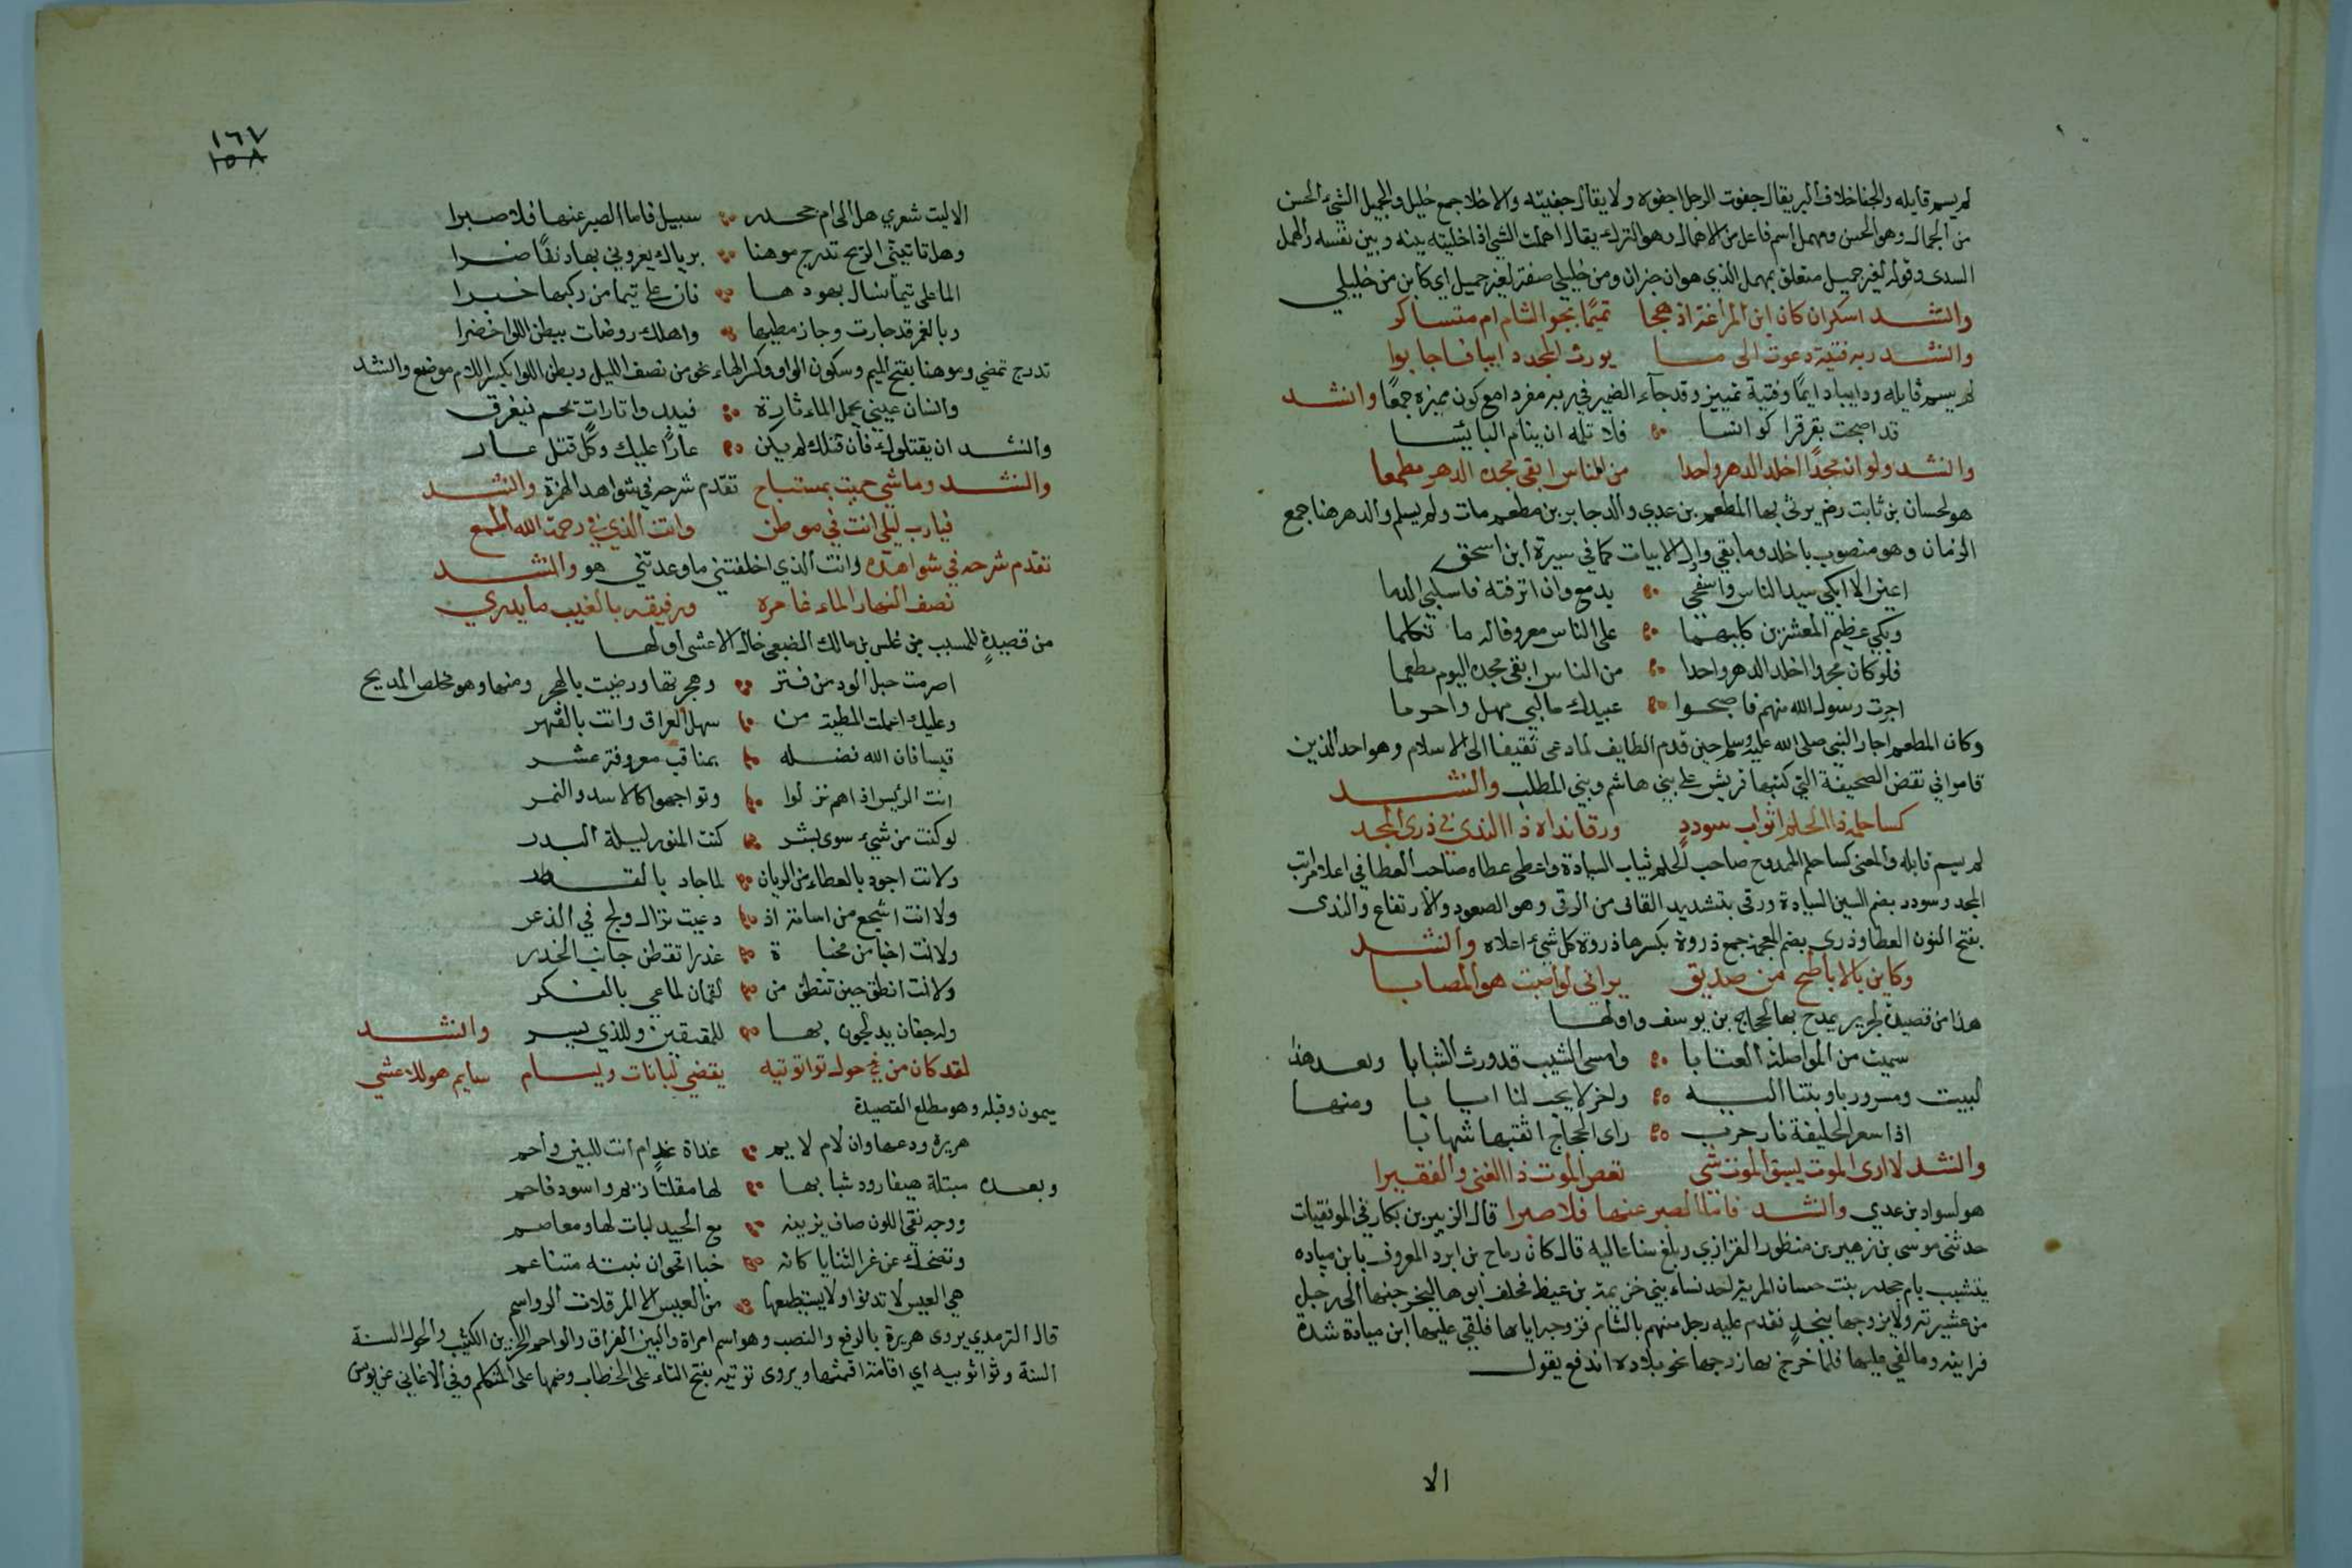 لم يسم قايله والجفا خلاف البر يقال جفوت الرجل اجفوه ولا يقال جفيته والاخلا جمع خليل والجميل الشيء الحسن
من الجمال وهو الحسن ومهمل اسم فاعل من الاهمال وهو الترك يقال اهملت الشي اذا خليته بينه وبين نفسه والهمل
السدى وقوله لغير جميل متعلق بمهمل الذي هو ان ومن خليلي صفة لغير جميل اي كاين من خليلي
وانشد اسكران كان ابن المراغة اذ هجا تميما بجو الشام ام متساكر
وانشد ربه فتية دعوت الى ما يورث المجد دايبا فاجابوا
لم يسم قايله ودايبا دايما وفتية تمييز وقد جآء الضمير في ربه مفردا مع كون مميزه جمعا وانشد
قد اصبحت بقرقرا كوانسا فلا تلمه ان ينام البائسا
وانشد ولو ان مجدا اخلد الدهر واحدا من الناس ابقى مجده الدهر مطعما
هو لحسان بن ثابت رضـ يرثى بها المطعم بن عدي والد جابر بن مطعم مات ولم يسلم والدهر هنا جمع
الزمان وهو منصوب باخلد وما بقي واول الابيات كما في سيرة ابن اسحق
اعين الا ابكي سيد الناس واسفحي بدمع وان انزفته فاسكبي الدما
وبكي عظيم المعشرين كليهما على الناس معروفا له ما تكلما
فلو كان مجدا اخلد الدهر واحدا من الناس ابقى مجده اليوم مطعما
اجرت رسول الله منهم فاصبحوا عبيدك ما لبي مهل واحرما
وكان المطعم اجار النبي صلى الله عليه وسلم حين قدم الطايف لما دعى ثقيفا الى الاسلام وهو احد الذين
قاموا في نقض الصحيفة التي كتبها قريش على بني هاشم وبني المطلب وانشد
كسا حلمه ذا الحلم اثواب سودد ورقا نداه ذا الندى في ذرى المجد
لم يسم قايله والمعنى كسا حلم الممدوح صاحب الحلم ثياب السيادة واعطى عطاه صاحب العطا في اعلا مراتب
المجد وسودد بضم السين السيادة ورقى بتشديد القاف من الرقى وهو الصعود والارتفاع والندى
بفتح النون العطا وذرى بضم المعجمة جمع ذروة بكسرها ذروة كل شيء اعلاه وانشد
وكاين بالاباطح من صديق يراني لو اصبت هو المصابا
هذا من قصيدة لجرير يمدح بها الحجاج بن يوسف واولها
سمئت من المواصلة العتابا وامسى الشيب قد ورث الشبابا وبعد هذا
البيت ومسرور باوبتنا اليه واخر لا يحب لنا ايابا ومنها
اذا سعر الخليفة نار حرب راى الحجاج اثقبها شهابا
وانشد لا ارى الموت يسبق الموت شي نغص الموت ذا الغنى والفقيرا
هو لسواد بن عدي وانشد فاما الصبر عنها فلا صبرا قال الزبير بن بكار في الموفقيات
حدثنى موسى بن زهير بن منظور الفزازي وبلغ سنا عاليه قال كان رماح بن ابرد المعروف بابن مياده
ينشبب بام جحدر بنت حسان المرية احد نساء بني خزيمة بن غيظ فحلف ابوها ليخرجنها الى رجل
من عشيرته ولا يزوجها بنجد فقدم عليه رجل منهم بالشام فزوجه اياها فلقي عليها ابن ميادة شدة
فراينه وما لقي عليها فلما خرج بها زوجها نحو بلاده اندفع يقول
الا
١٦٧
١٥٨
الا ليت شعري هل الى ام جحدر سبيل فاما الصبر عنها فلا صبرا
وهل تاتيني الريح تدرج موهنا برياك يعروني بها
الما على تيما نسال يهودها فان على تيما من ركبها خبرا
وبالغمر قد جازت وجاز مطيها واهلك روضات ببطن اللوا خضرا
تدرج تمضي وموهنا بفتح الميم وسكون الواو وكسر الهاء نحو من نصف الليل وبطن اللوا بكسر اللام موضع وانشد
وانسان عيني يحمل الماء تارة فيبدو وتارات يجم فيغرق
وانشد ان يقتلوك فان قتلك لم يكن عارا عليك وكل قتل عار
وانشد وما شي حميت بمستباح تقدم شرحه في شواهد الهمزة وانشد
فيارب ليلى انت في موطن وانت الذي في رحمة الله اطمع
تقدم شرحه في شواهده وانت الذي اخلفتني ما وعدتني هو وانشد
نصف النهار الماء غامره ورفيقه بالغيب ما يدري
من قصيدة للمسيب بن علس بن مالك الضبعي خال الاعشى اولها
اصرمت حبل الود من فتر وهجرتها ورضيت بالهجر ومنها وهو مخلص المديح
وعليك اعملت المطية من سهل العراق وانت بالقهر
قيسا فان الله فضله بمناقب معروفة عشر
انت الرئيس اذا هم نزلوا وتواجهوا كالاسد والنمر
لو كنت من شيء سوى بشر كنت المنور ليلة البدر
ولانت اجود بالعطاء من الريان لما جاد بالقطر
ولا انت اشجع من اسامة اذ دعيت نزال ولج في الذعر
ولانت احيا من مخباة عذرا تقطن جانب الخدر
ولانت انطق حين تنطق من لقمان لما عي بالفكر
وله جفان يدلجون بها للمعتفين وللذي يسر وانشد
لقد كان من في حول ثواء ثويته يقضي لبانات ويسام سايم هو للاعشى
ميمون وقبله وهو مطلع القصيدة
هريرة ودعها وان لام لايم غداة غد ام انت للبين واجم
وبعده مبتلة هيفا رود شبابها لها مقلتا ريم واسود فاحم
ووجه نقي اللون صاف يزينه مع الجيد لبات لها ومعاصم
وتضحك عن غر الثنايا كانه خبا اقحوان نبته متناعم
هي العيس لا تدنوا ولا يستطيعها من العيس الا المرقلات الرواسم
قال الترمدي يروى هريرة بالرفع والنصب وهو اسم امراة والبين الفراق والواجم الحزين الكئيب والحول السنة
السنة وثواء ثوبيه اي اقامة اقمتها ويروى ثويته بفتح التاء على الخطاب وضمها على المتكلم وفي الاغاني عن يونس